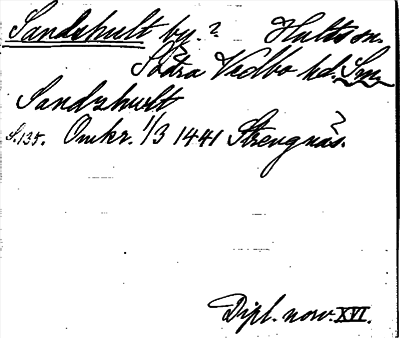 Sandshult by. ? Hults sn.
Södra Vedbo hd. Sm.
Sandzhult
S. 135. Omkr. 1/3 1441 Strengnäs. ?
Dipl. norv. XVI.